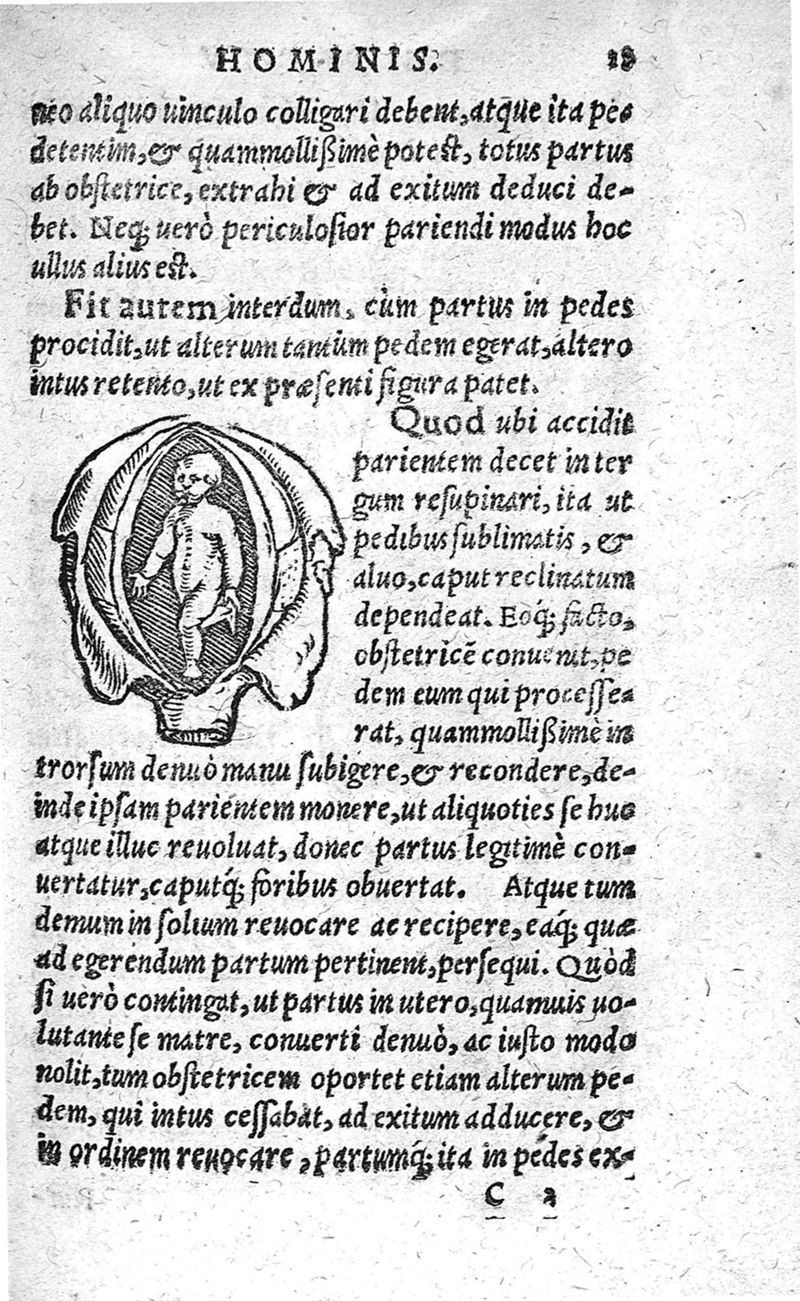 HOMINIS. 19
neo aliquo uinculo colligari debent, atque ita pe⸗
detentim, & quammollißimè potest, totus partus
ab obstetrice, extrahi & ad exitum deduci de-
bet. Neq; uerò periculosior pariendi modus hoc
ullus alius est.
Fit autem interdum, cùm partus in pedes
procidit, ut alterum tantùm pedem egerat, altero
intus retento, ut ex præsenti figura patet.
Quod ubi accidit
parientem decet in ter
gum resupinari, ita ut
pedibus sublimatis, &
aluo, caput reclinatum
dependeat. Eoq́; facto,
obstetricē conuenit, pe
dem eum qui processe⸗
rat, quammollißimè in
trorsum denuò manu subigere, & recondere, de-
inde ipsam parientem monere, ut aliquoties se huc
atque illuc reuoluat, donec partus legitimè con-
uertatur, caputq́; foribus obuertat. Atque tum
demum in solium reuocare ac recipere, eaq́; quæ
ad egerendum partum pertinent, persequi. Quòd
si uerò contingat, ut partus in utero, quamuis uo-
lutante se matre, conuerti denuò, ac iusto modo
nolit, tum obstetricem oportet etiam alterum pe⸗
dem, qui intus cessabat, ad exitum adducere, &
in ordinem reuocare, partumq́; ita in pedes ex⸗
C 2